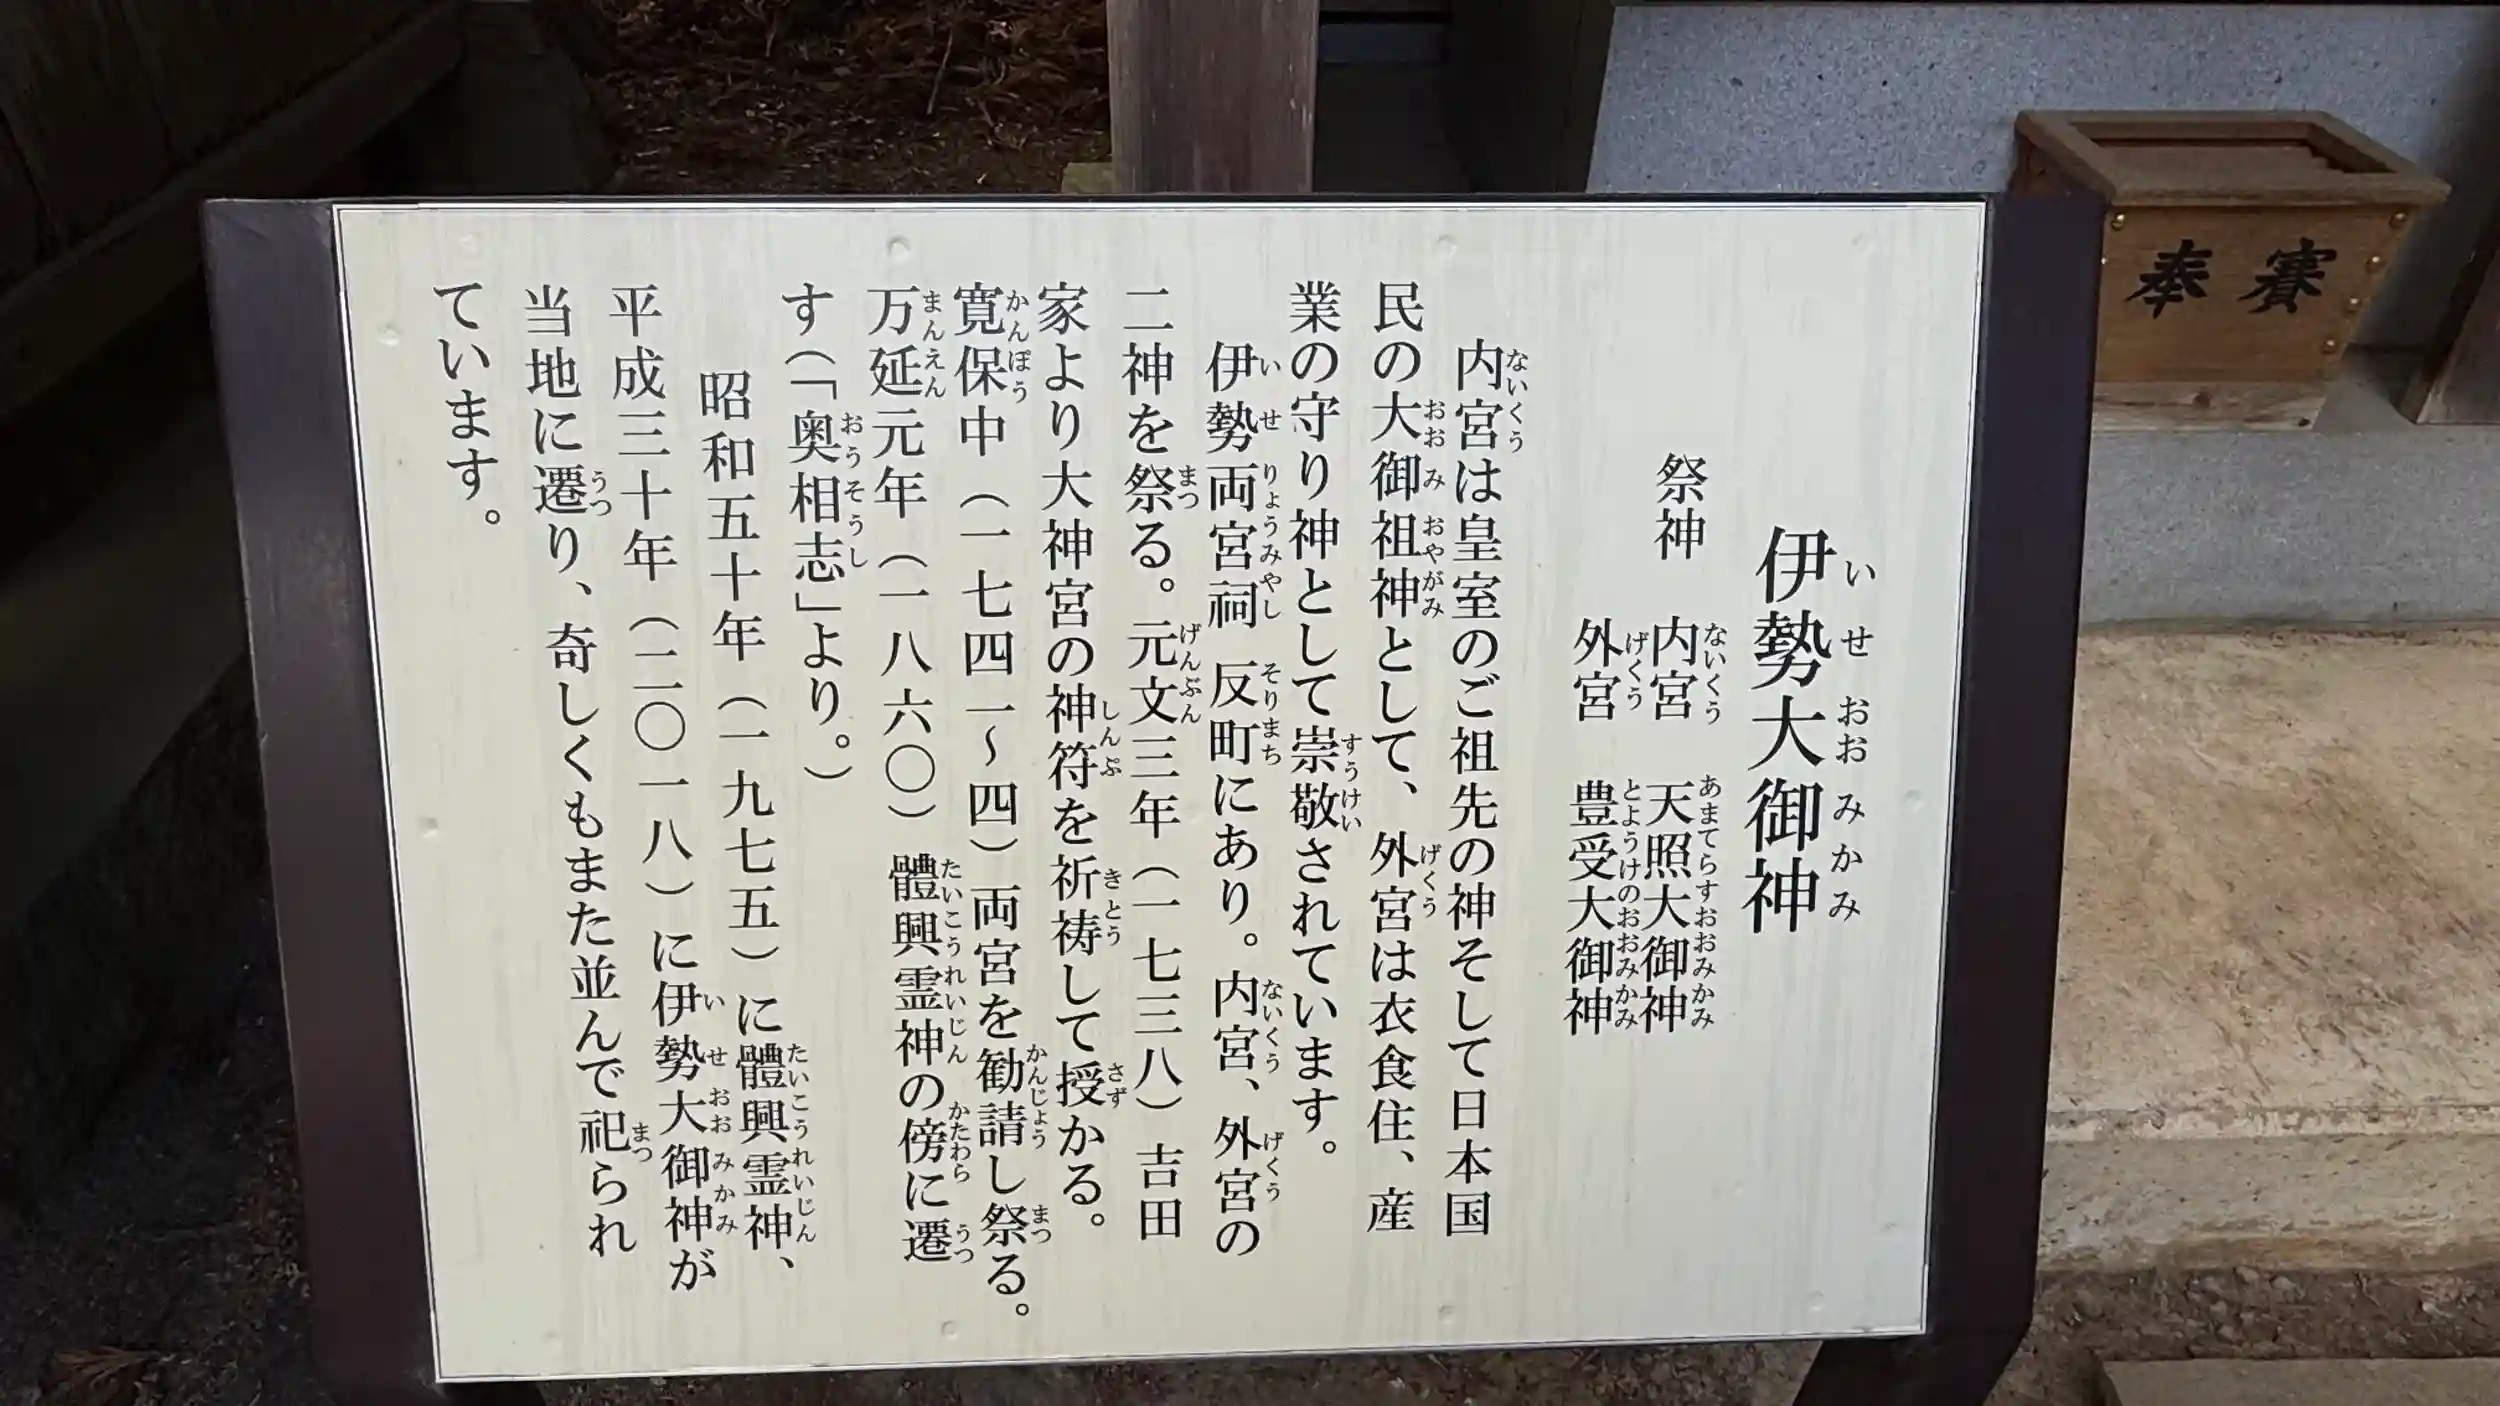 伊勢大御神
祭神 内宮 天照大御神
外宮 豊受大御神
内宮は皇室のご祖先の神そして日本国
民の大御祖神として、外宮は衣食住、産
業の守り神として崇敬されています。
伊勢両宮祠 反町にあり。内宮、外宮の
二神を祭る。元文三年（一七三八）吉田
家より大神宮の神符を祈祷して授かる。
寛保中（一七四一～四）両宮を勧請し祭る。
万延元年（一八六〇）體興霊神の傍に遷
す（「奥相志」より。）
昭和五十年（一九七五）に體興霊神、
平成三十年（二〇一八）に伊勢大御神が
当地に遷り、奇しくもまた並んで祀られ
ています。
賽
奉